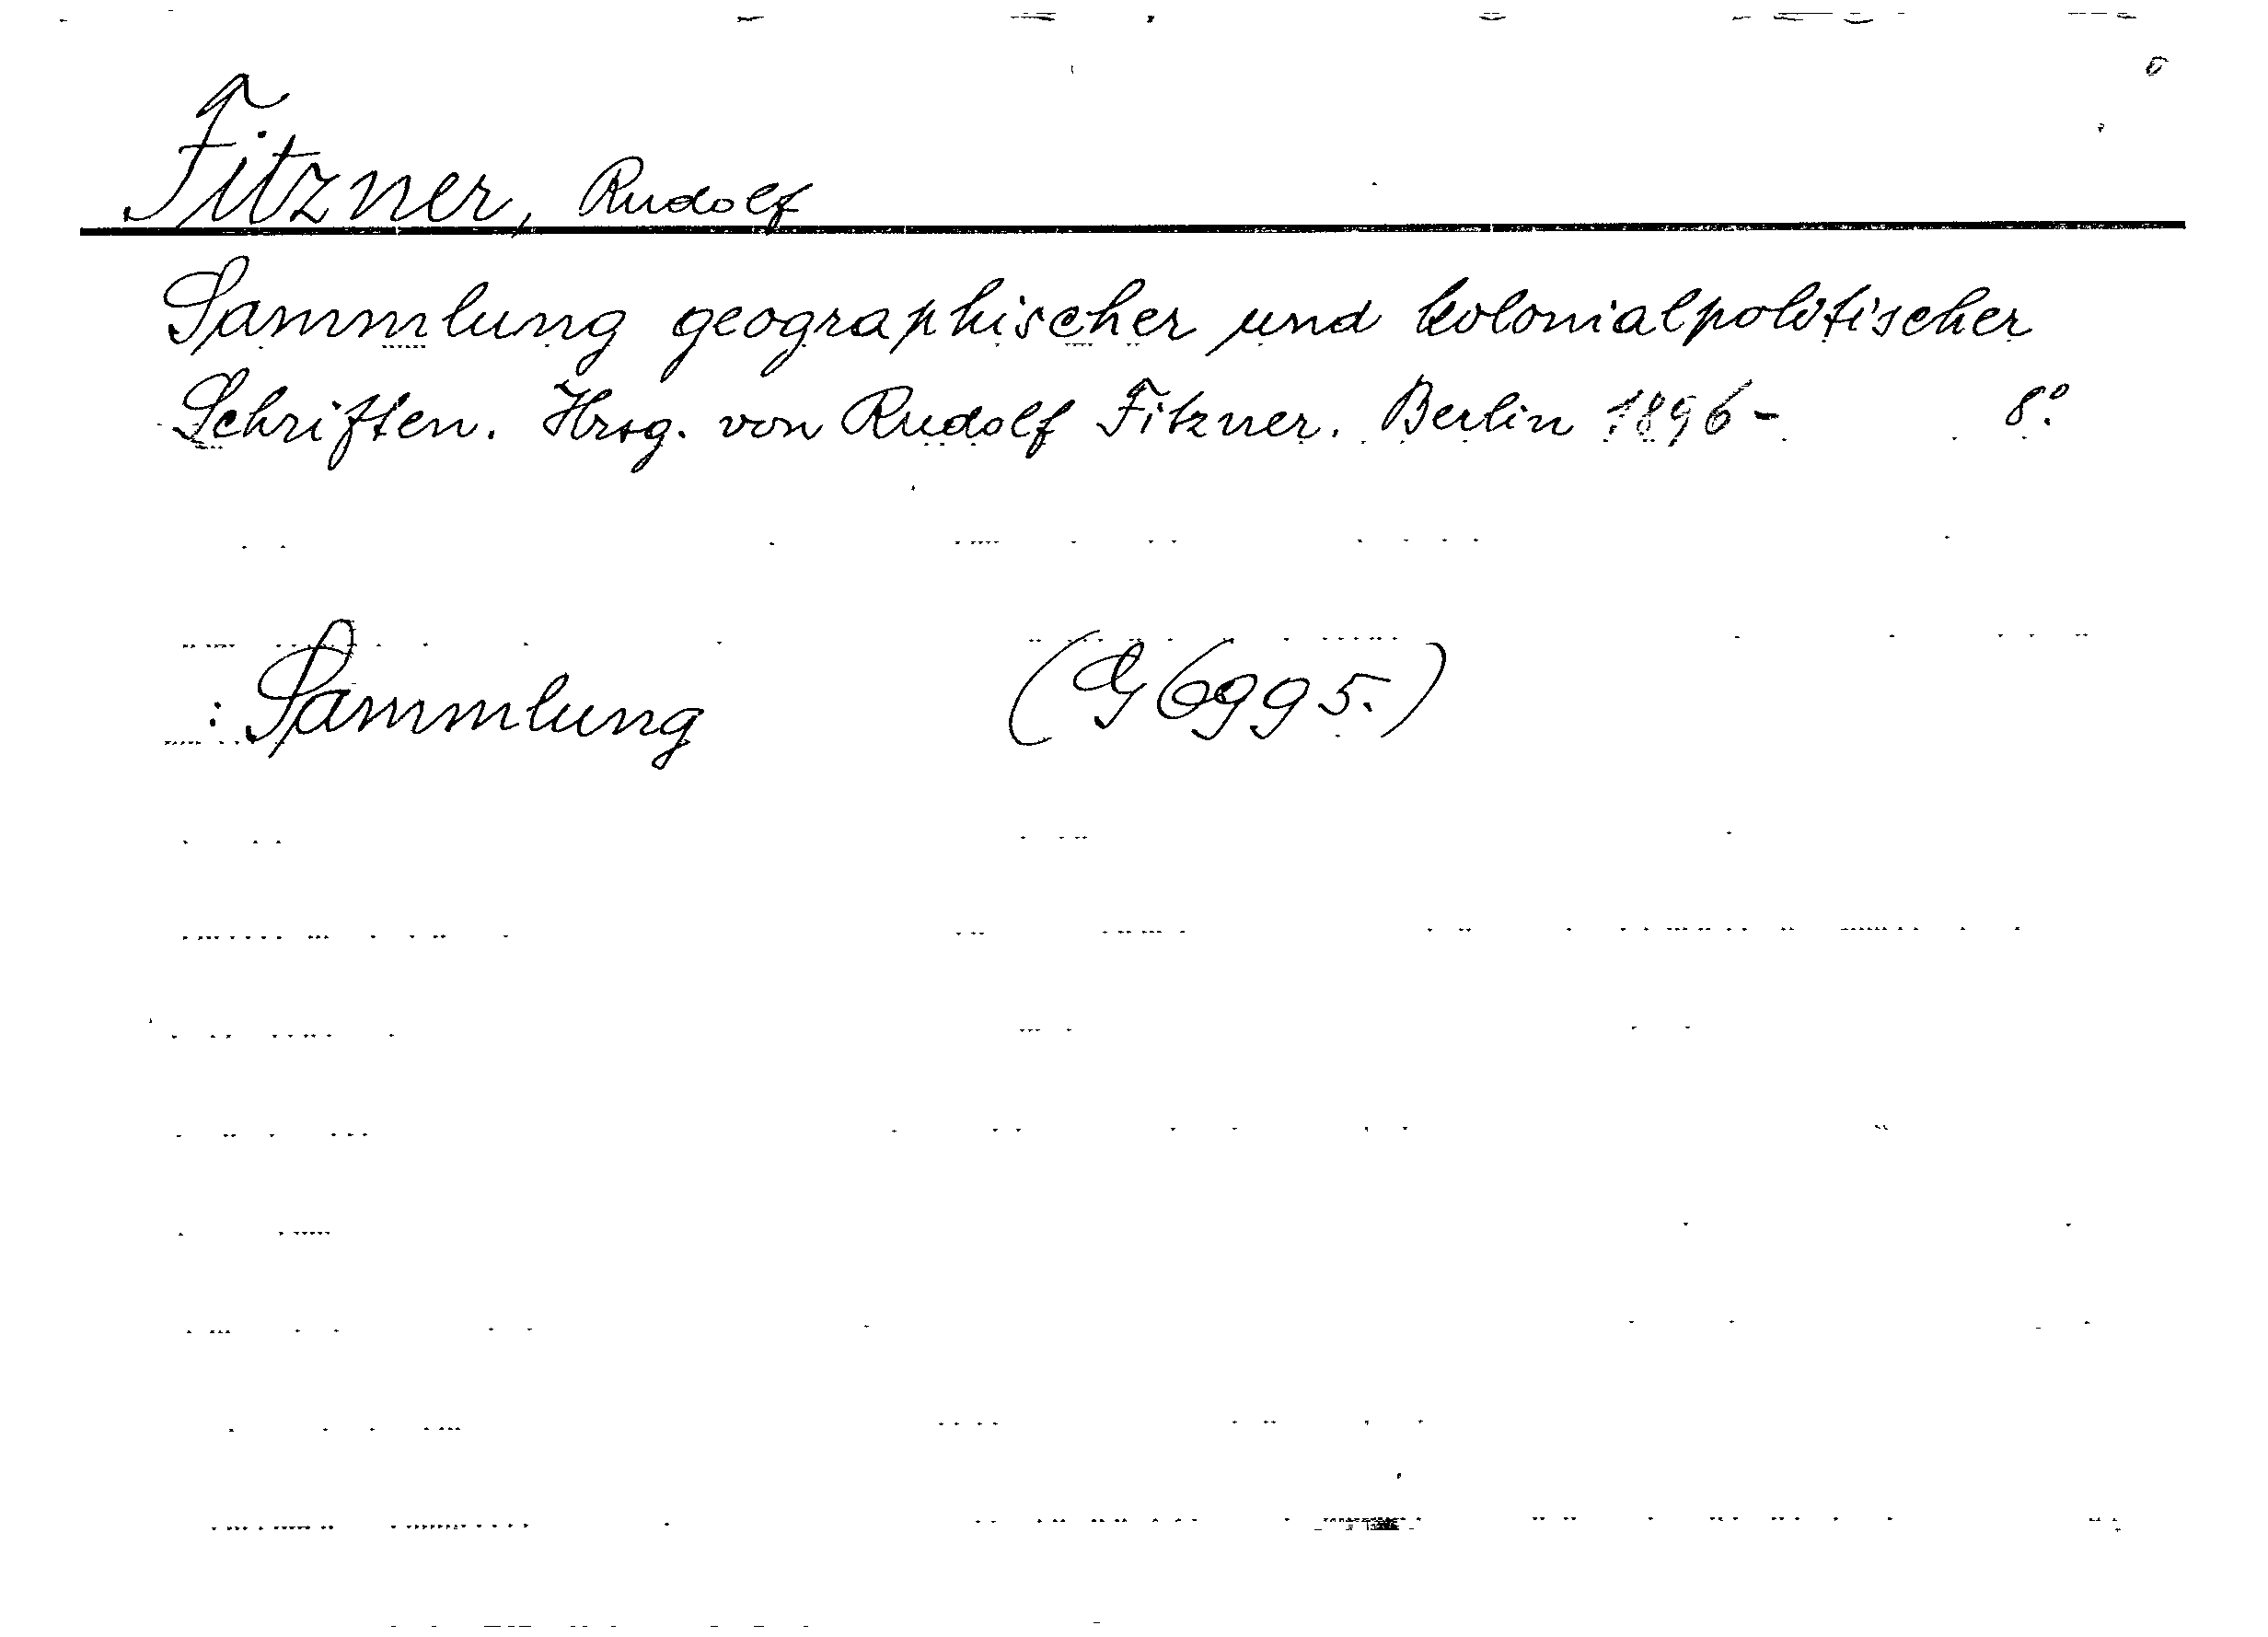 Fitzner, Rudolf
Sammlung geographischer und kolonialpolitischer
Schriften. Hrsg. von Rudolf Fitzner. Berlin 1896- 8°.
: Sammlung (G 6995.)